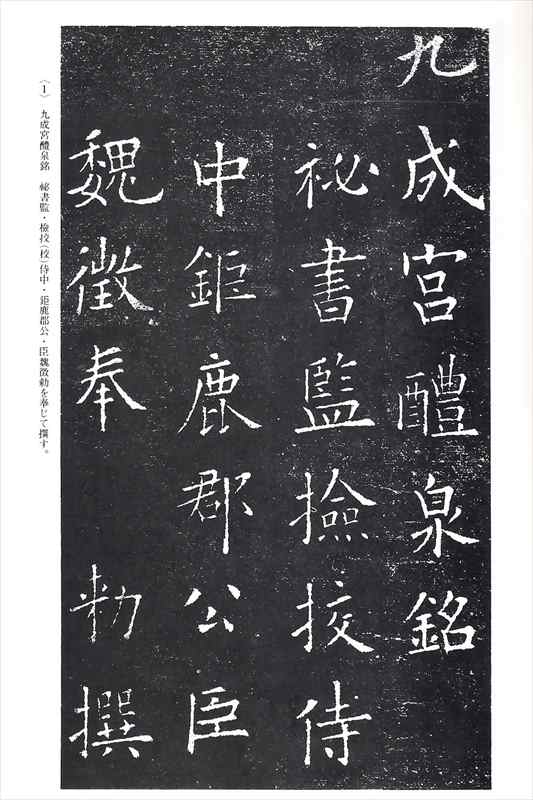 九成宮醴泉銘
祕書監撿挍侍
中鉅鹿郡公臣
魏徵奉　勑撰
(1)　九成宮醴泉銘　祕書監・檢挍(校)侍中・鉅鹿郡公・臣魏徵勅を奉じて撰す。